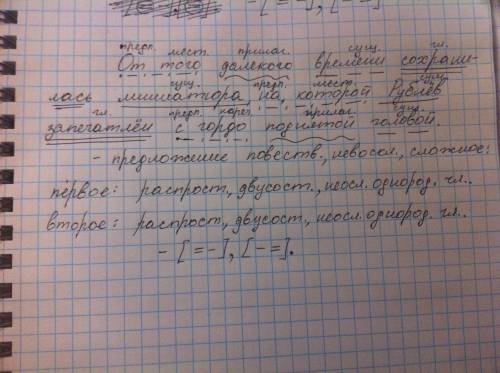 - [ = - ], [ - = ]
предл. мест. прилаг. сущ. гл.
От того далекого времени сохрани-
сущ. предл. мест. сущ.
лась миниатюра, на которой Рублёв
гл. предл. нареч. прилаг. сущ.
запечатлён с гордо поднятой головой.
- предложение повеств., невоскл., сложное:
первое: распрост., двусост., неосл. однород. чл..
второе: распрост., двусост., неосл. однород. чл..
- [ = - ], [ - = ].